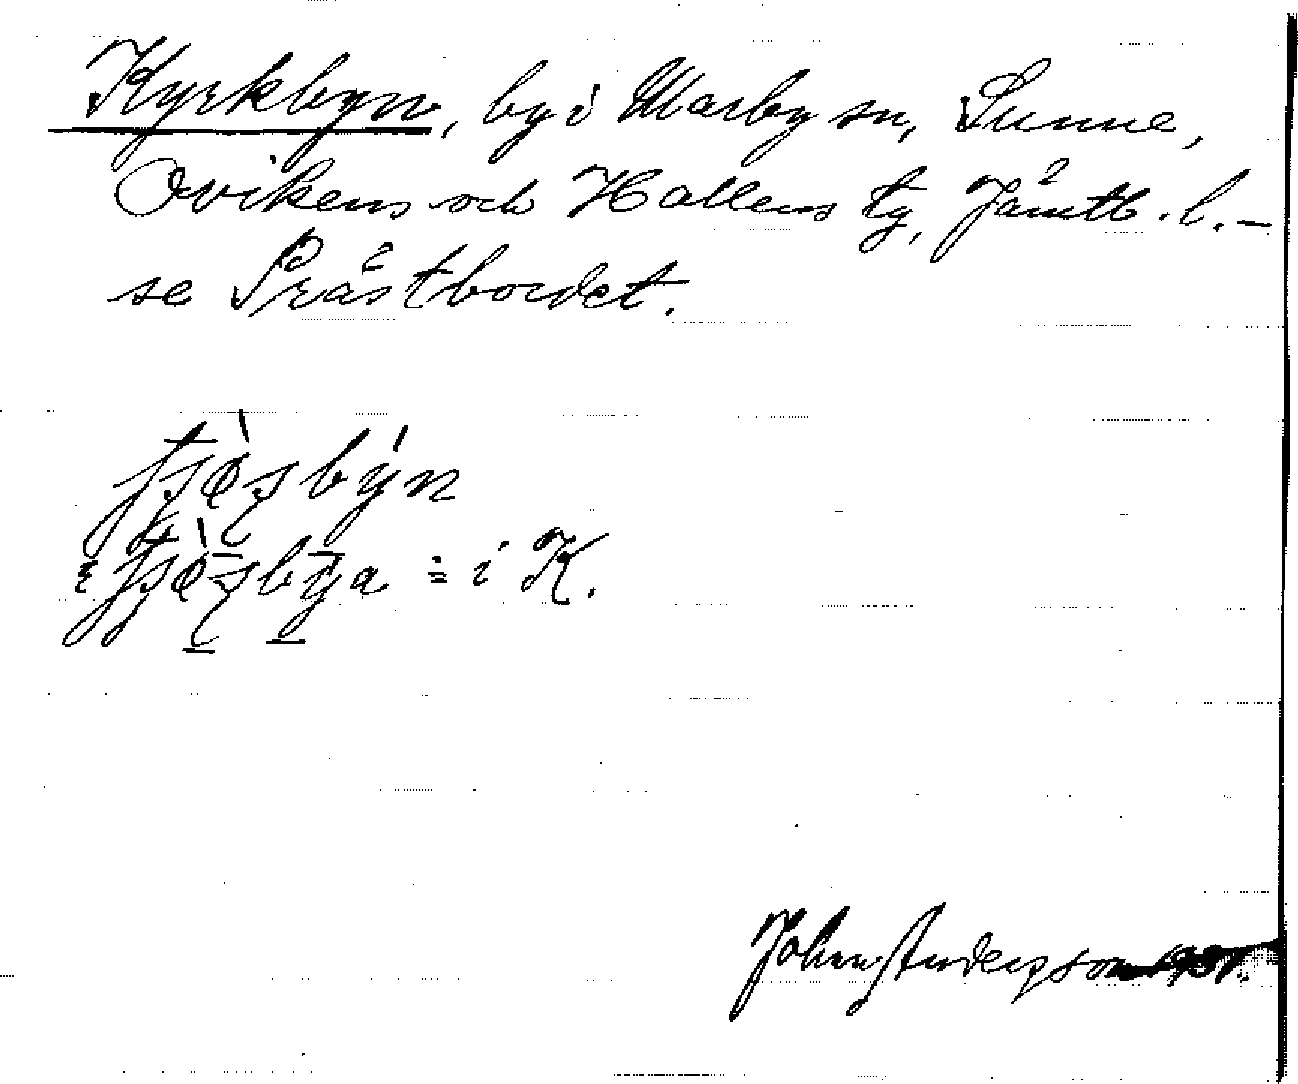 Kyrkbyn, by i Marby sn, Sunne,
Ovikens och Hallens tg, Jämtl. l. –
se Prästbordet.
= i K.
John Andersson 1931.